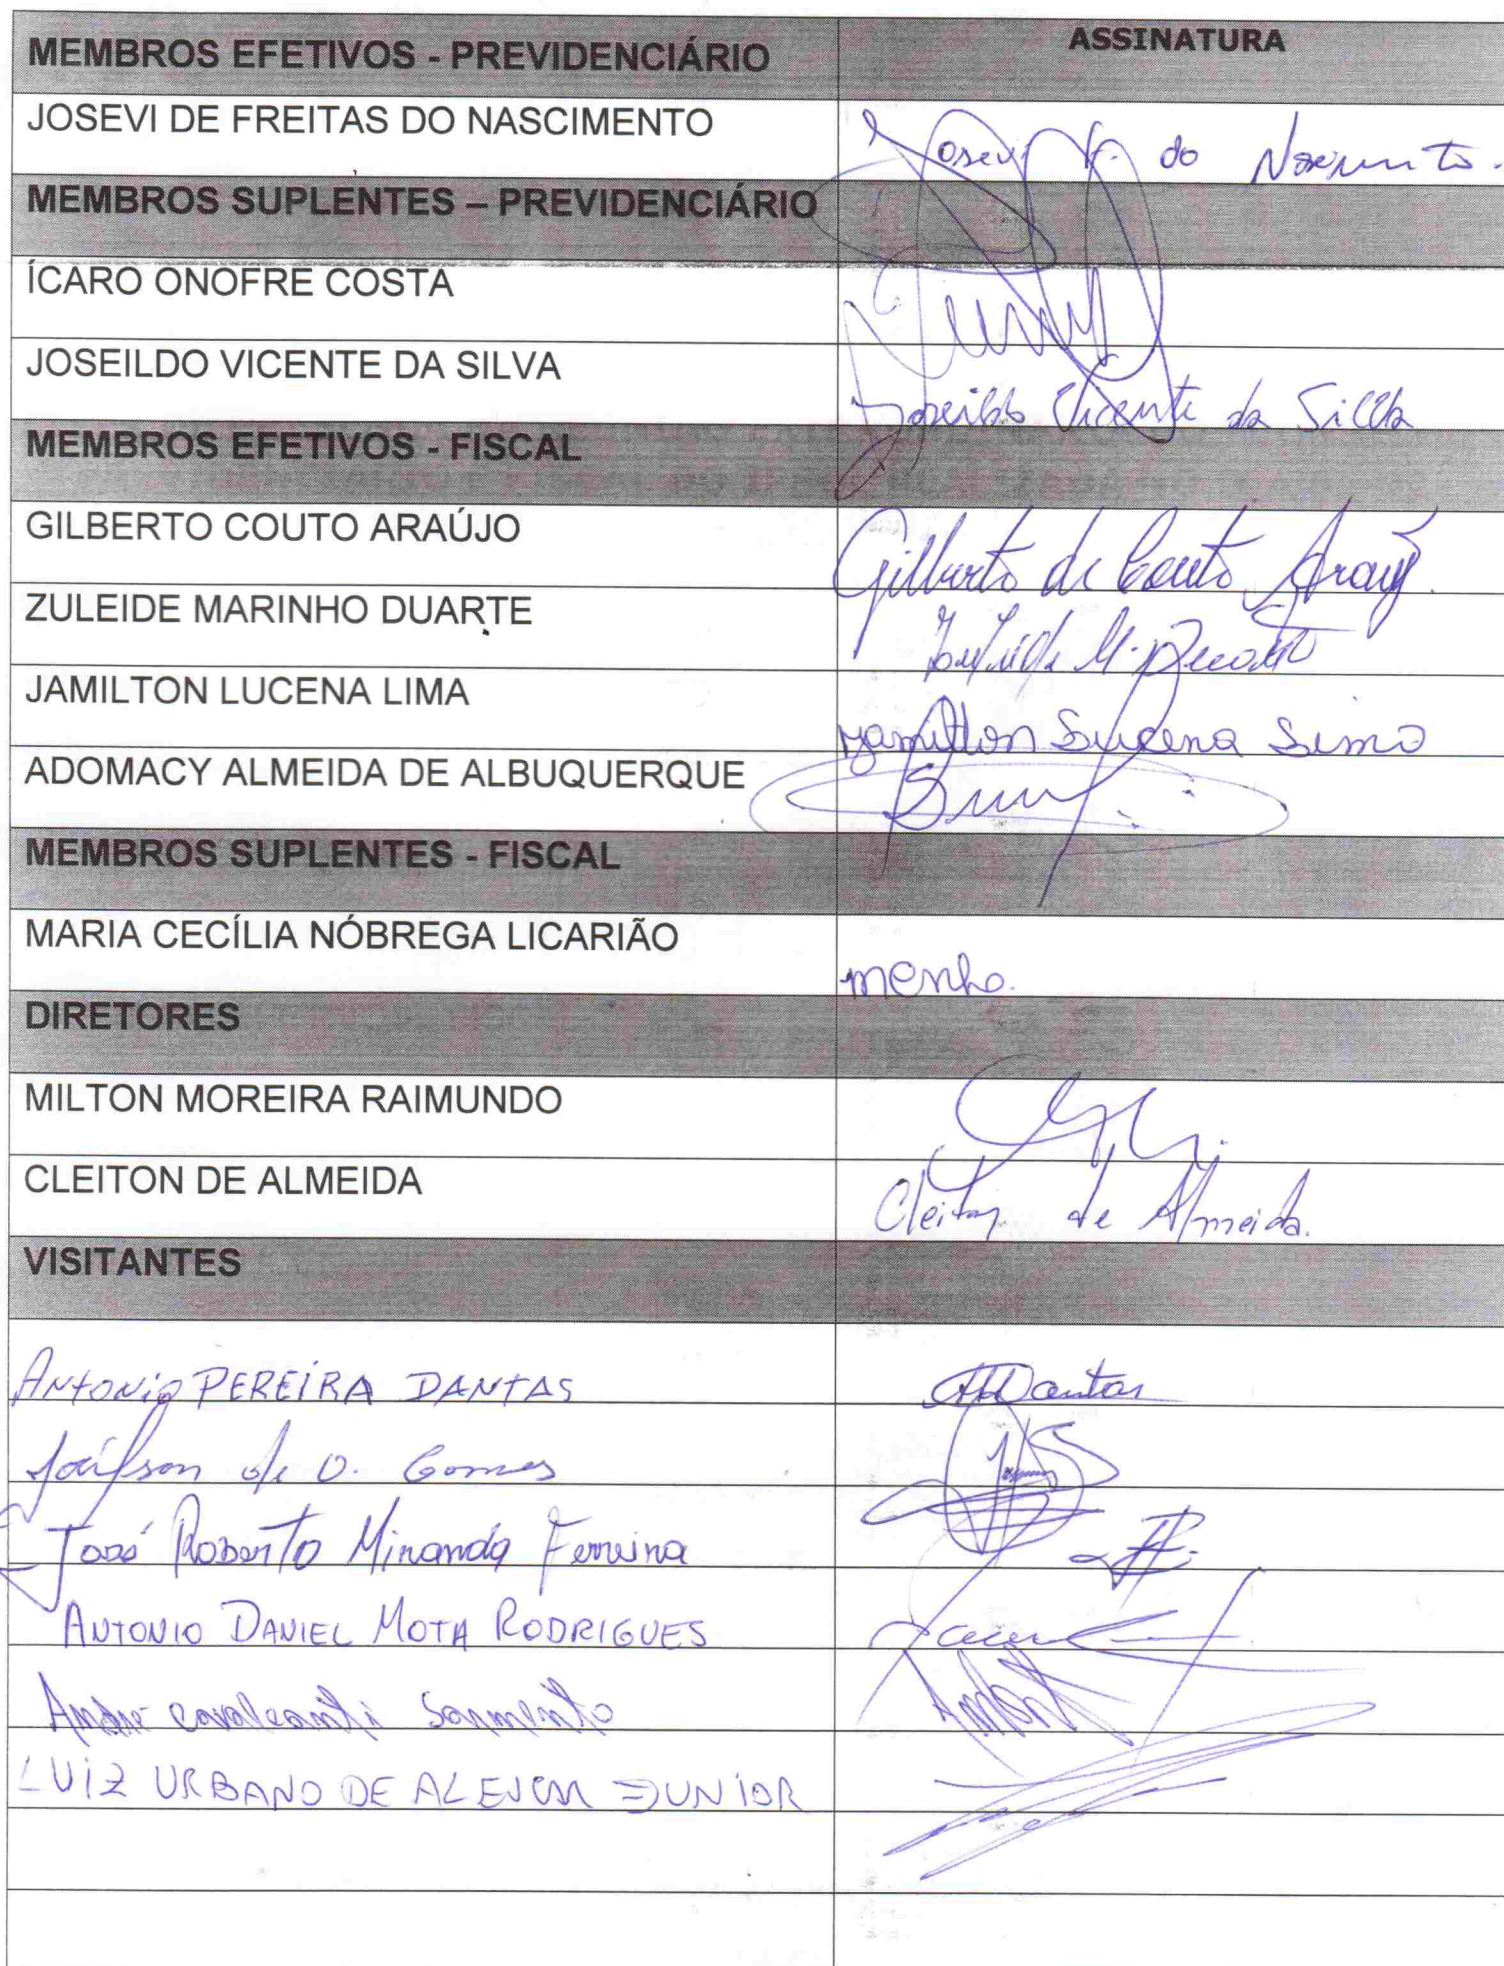 MEMBROS EFETIVOS - PREVIDENCIÁRIO ASSINATURA
JOSEVI DE FREITAS DO NASCIMENTO Josevi F. do
MEMBROS SUPLENTES – PREVIDENCIÁRIO
ÍCARO ONOFRE COSTA
JOSEILDO VICENTE DA SILVA Joseildo Vicente da Silva
MEMBROS EFETIVOS - FISCAL
GILBERTO COUTO ARAÚJO Gilberto de Couto Araujo
ZULEIDE MARINHO DUARTE Zuleide M. Duarte
JAMILTON LUCENA LIMA Jamilton Lucena Lima
ADOMACY ALMEIDA DE ALBUQUERQUE
MEMBROS SUPLENTES - FISCAL
MARIA CECÍLIA NÓBREGA LICARIÃO
DIRETORES
MILTON MOREIRA RAIMUNDO
CLEITON DE ALMEIDA Cleiton de Almeida.
VISITANTES
ANTONIO PEREIRA DANTAS Dantas
de O. Gomes
José Roberto Miranda Ferreira
ANTONIO DANIEL MOTA RODRIGUES
André Cavalcanti Sarmento
LUIZ URBANO DE JUNIOR